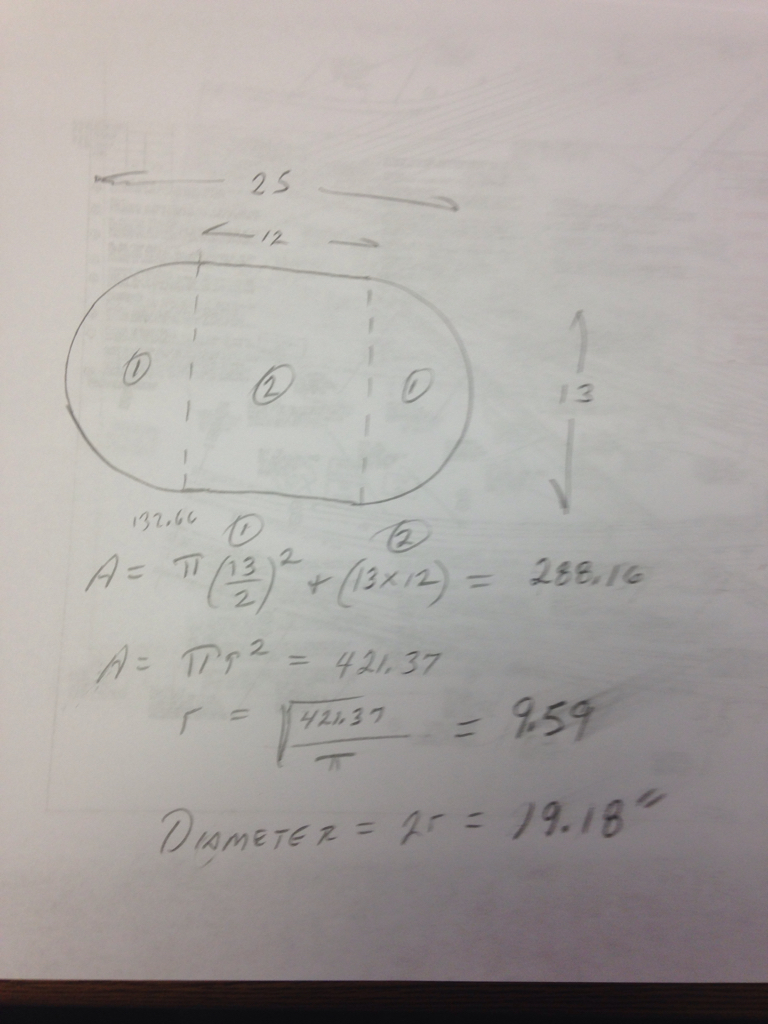 25
12
① ② ①
13
132.66 ① ②
A = π (13/2)² + (13×12) = 288.16
A = πr² = 421.37
r = √421.37/π = 9.59
DIAMETER = 2r = 19.18"